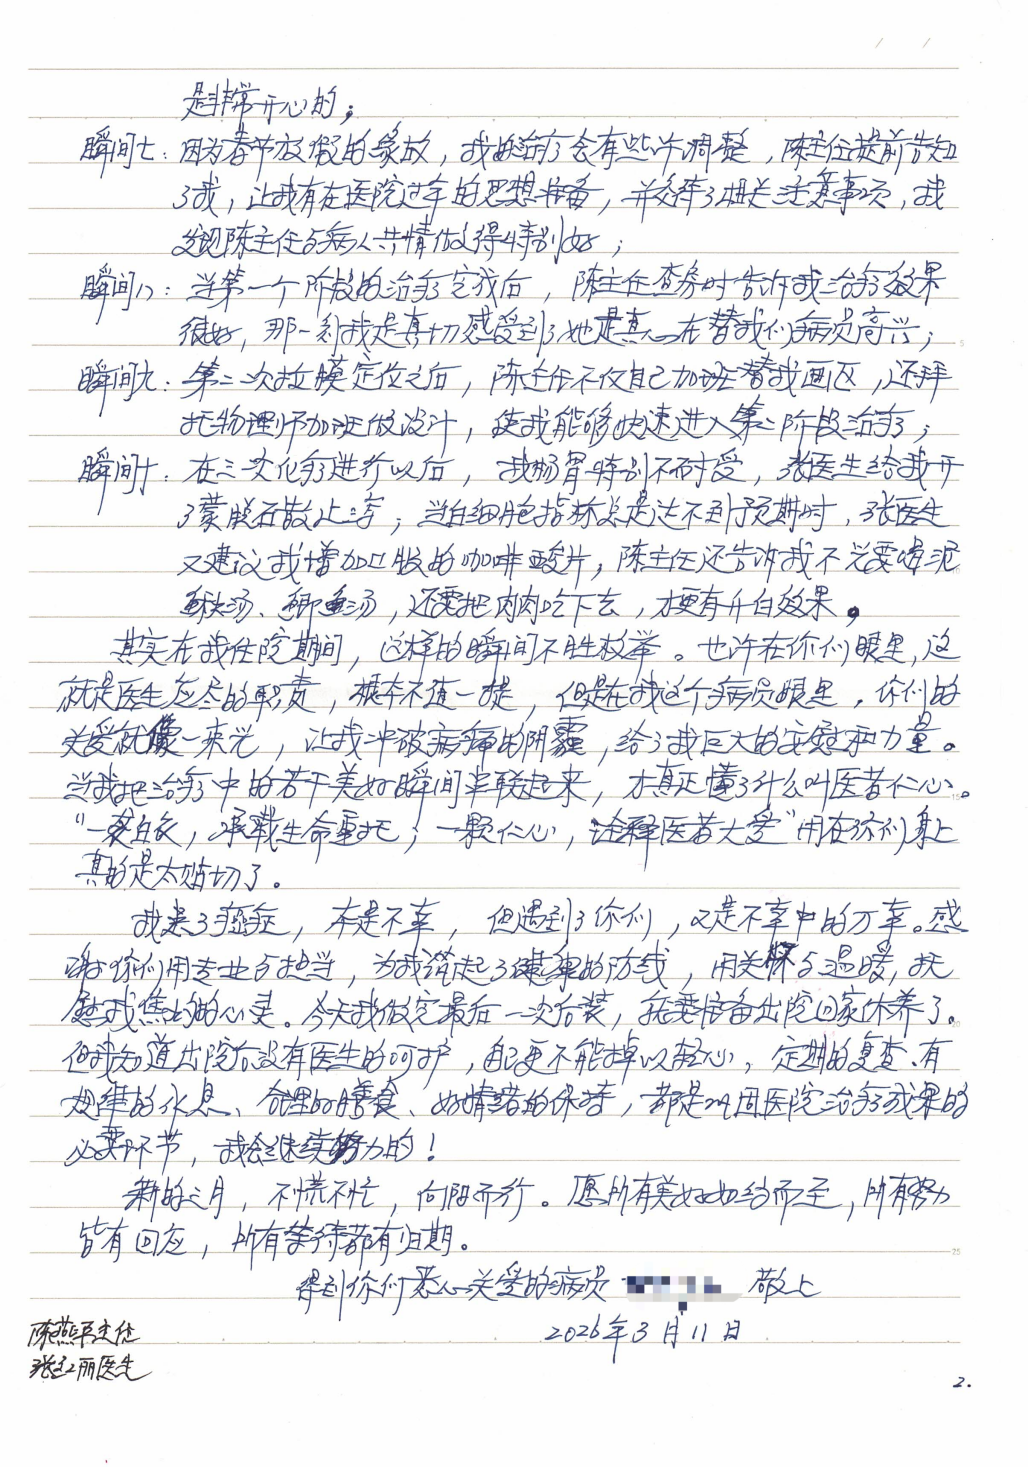 是非常开心的；
瞬间七：因为春节放假的缘故，我的治疗会有些许调整，陈主任提前告知
了我，让我有在医院过年的思想准备，并交待了相关注意事项，我
发现陈主任与病人共情做得特别好；
瞬间八：当第一个阶段的治疗完成后，陈主任查房时告诉我治疗效果
很好，那一刻我是真切感受到了她是真心在替我们病员高兴；
瞬间九：第二次拉膜定位之后，陈主任不仅自己加班替我画区，还拜
托物理师加班做设计，使我能够快速进入第二阶段治疗；
瞬间十：在三次化疗进行以后，我肠胃特别不耐受，张医生给我开
了蒙脱石散止泻；当白细胞指标总是达不到预期时，张医生
又建议我增加口服的咖啡酸片，陈主任还告诉我不光要喝泥
鳅汤、鲫鱼汤，还要把肉肉吃下去，才更有升白效果。
其实在我住院期间，这样的瞬间不胜枚举。也许在你们眼里，这
就是医生应尽的职责，根本不值一提，但是在我这个病员眼里，你们的
关爱就像一束光，让我冲破病痛的阴霾，给了我巨大的安慰和力量。
当我把治疗中的若干美好瞬间串联起来，才真正懂了什么叫医者仁心。
“一袭白衣，承载生命重托；一颗仁心，诠释医者大爱”用在你们身上
真的是太贴切了。
我患了癌症，本是不幸，但遇到了你们，又是不幸中的万幸。感
谢你们用专业与担当，为我筑起了健康的防线，用关怀与温暖，抚
慰我焦灼的心灵。今天我做完最后一次后装，我要准备出院回家休养了。
但我知道出院后没有医生的呵护，自己更不能掉以轻心，定期的复查、有
规律的作息、合理的膳食、好情绪的保持，都是巩固医院治疗成果的
必要环节，我会继续努力的！
新的三月，不慌不忙，向阳而行。愿所有美好如约而至，所有努力
皆有回应，所有等待都有归期。
得到你们悉心关爱的病员 敬上
2026年3月11日
陈燕平主任
张红丽医生
2.